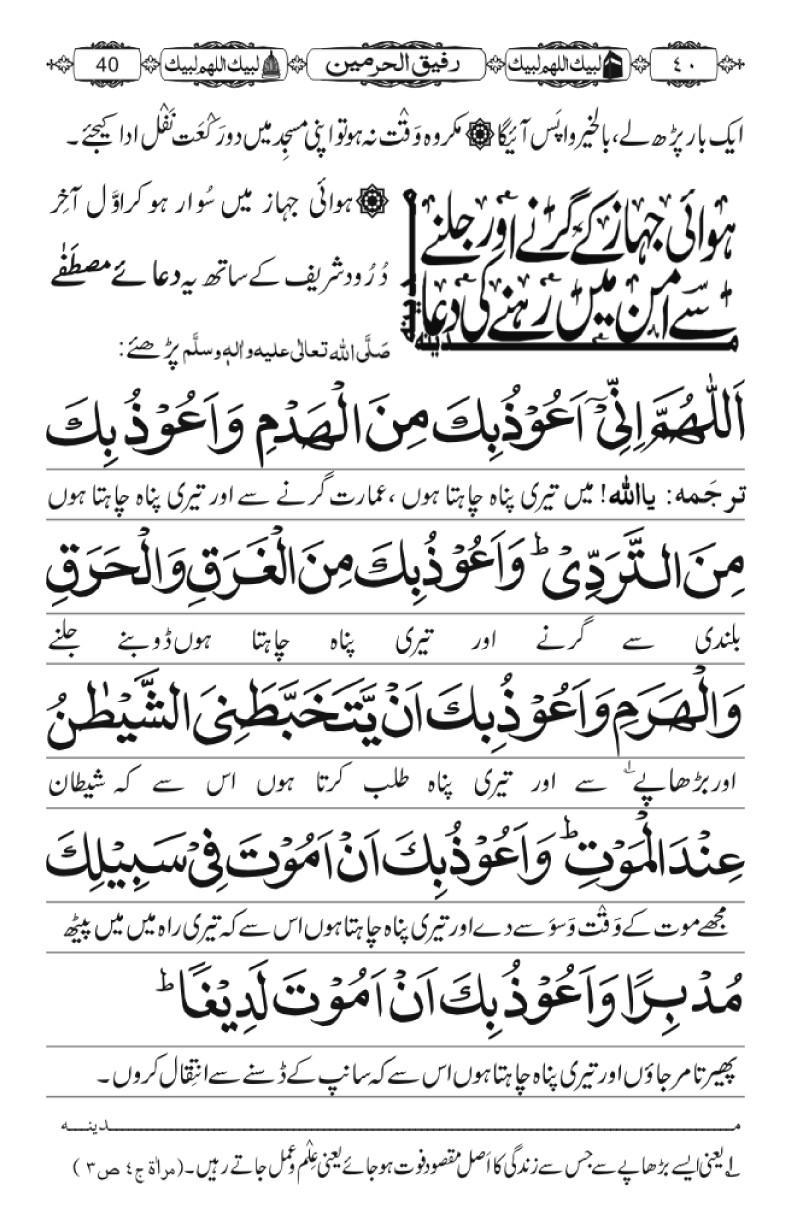 ٤٠ لبیك اللهم لبیك رفیق الحرمین لبیك اللهم لبیك 40
ایک بار پڑھ لے، بالخیر واپس آئیگا ۞ مکروہ وَقْت نہ ہو تو اپنی مسجد میں دو رَکْعَت نَفْل ادا کیجئے۔
ہوائی جہاز کے گرنے اور جلنے
سے امن میں رہنے کی دعا
مدینہ
مدینہ
۞ ہوائی جہاز میں سُوار ہو کر اوَّل آخِر
دُرُود شریف کے ساتھ یہ دعائے مصطَفٰے
صَلَّی اللہ تعالٰی علیہ والہٖ وسلَّم پڑھئے:
اَللّٰهُمَّ اِنِّیْۤ اَعُوْذُ بِكَ مِنَ الْهَدْمِ وَاَعُوْذُ بِكَ
ترجَمہ: یا اللہ! میں تیری پناہ چاہتا ہوں، عمارت گرنے سے اور تیری پناہ چاہتا ہوں
مِنَ التَّرَدِّیْ ؕ وَاَعُوْذُ بِكَ مِنَ الْغَرَقِ وَالْحَرَقِ
بلندی سے گرنے اور تیری پناہ چاہتا ہوں ڈوبنے جلنے
وَالْهَرَمِ وَاَعُوْذُ بِكَ اَنْ یَّتَخَبَّطَنِیَ الشَّیْطٰنُ
اور بڑھاپے ۱؎ سے اور تیری پناہ طلب کرتا ہوں اس سے کہ شیطان
عِنْدَ الْمَوْتِ ؕ وَاَعُوْذُ بِكَ اَنْ اَمُوْتَ فِیْ سَبِیْلِكَ
مجھے موت کے وَقْت وَسوَسے دے اور تیری پناہ چاہتا ہوں اس سے کہ تیری راہ میں میں پیٹھ
مُدْبِرًا وَاَعُوْذُ بِكَ اَنْ اَمُوْتَ لَدِیْغًا ؕ
پھیرتا مر جاؤں اور تیری پناہ چاہتا ہوں اس سے کہ سانپ کے ڈسنے سے انتِقال کروں۔
مدینہ
۱؎ یعنی ایسے بڑھاپے سے جس سے زندگی کا اَصل مقصود فوت ہو جائے یعنی عِلْم و عمل جاتے رہیں۔ (مراٰة ج ٤ ص ۳)